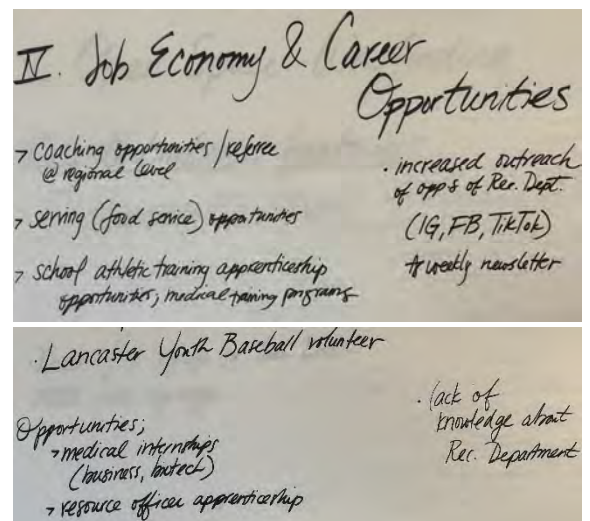 IV. Job Economy & Career
Opportunities
> coaching opportunities / referee
@ regional level
> serving (food service) opportunities
> school athletic training apprenticeship
opportunities; medical training programs
· increased outreach
of opps of Rec. Dept.
(IG, FB, TikTok)
weekly newsletter
· Lancaster Youth Baseball volunteer
Opportunities;
> medical internships
(business, biotech)
> resource officer apprenticeship
· lack of
knowledge about
Rec. Department